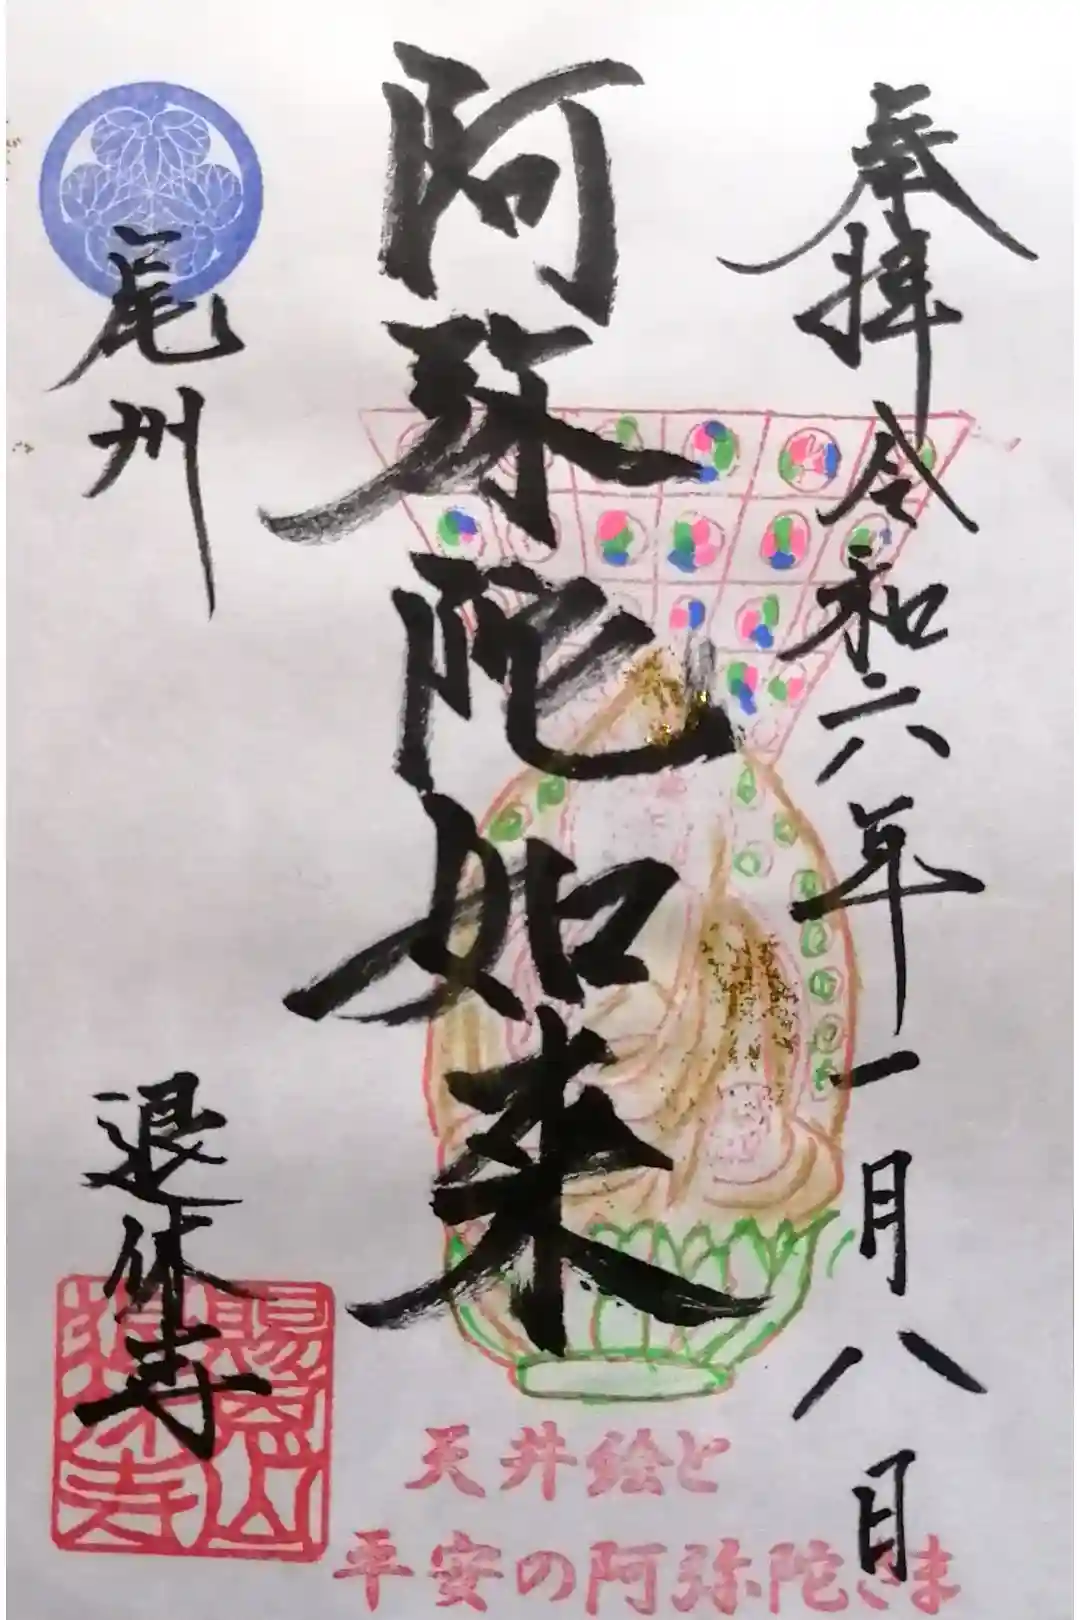 奉拝
令和六年一月八日
阿弥陀如来
尾州
退休寺
賜恩山
退休寺
天井絵と
平安の阿弥陀さま